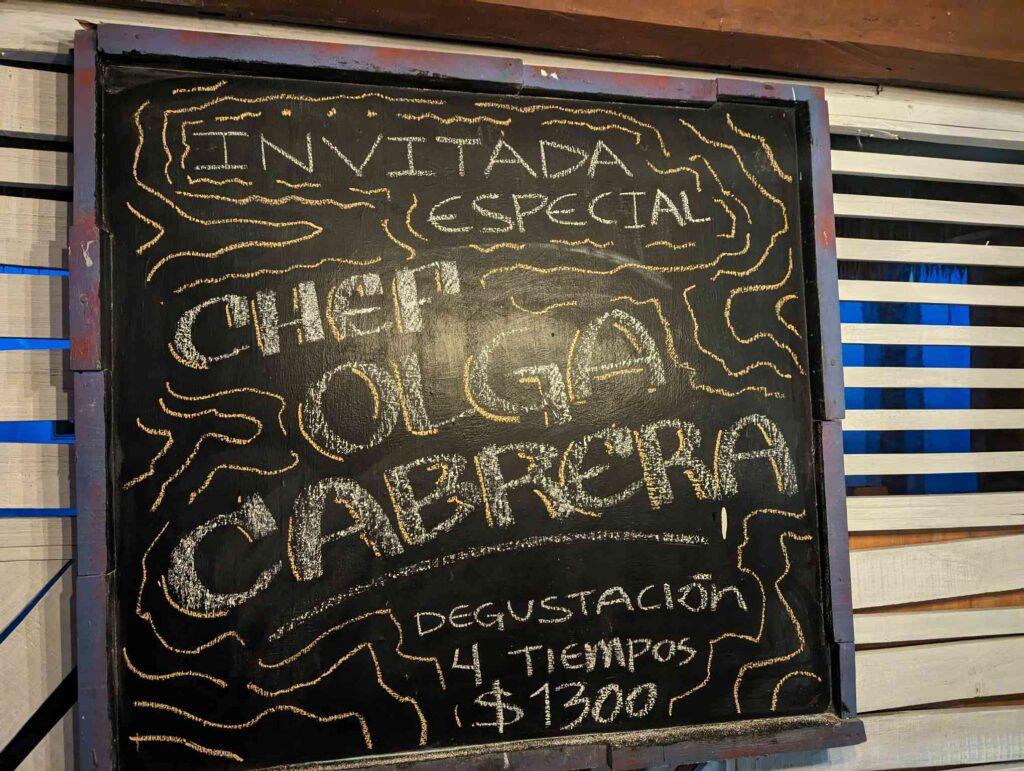 INVITADA
ESPECIAL
CHEF
OLGA
CABRERA
DEGUSTACIÓN
4 TIEMPOS
$1300